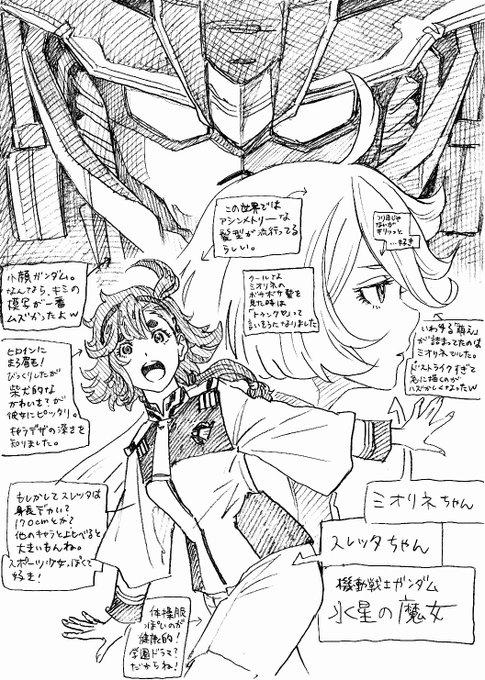 この世界では
アシンメトリーな
髪型が流行ってる
らしい。
つり目じゃ
ないが
キリッと
…好き
小顔ガンダム。
なんてなら、キミの
模写が一番
ムズかったよw
クールで
ミオリネの
ボサボサ髪を
見た時は
「トランクや」って
言いそうになりました
いわゆる「萌え」
が詰まってたのは
ミオリネでした。
ドストライクすぎて
逆に描くのが
ハズかしくなったw
ヒロインに
まろ眉も
びっくりしたが
柴犬的な
かわいさが
彼女にピッタリ。
キャラデザの深さを
知りました。
もしかしてスレッタは
身長デカい?
170cmとか?
他のキャラと比べると
大きいもんね。
スポーツ少女ぽくて
好き!
ミオリネちゃん
スレッタちゃん
機動戦士ガンダム
水星の魔女
体操服
ぽいのが
健康的!
学園ドラマ?
だからね!